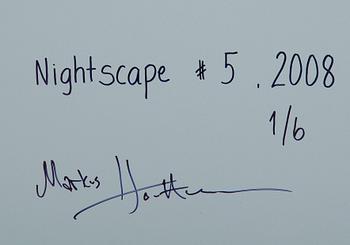 Nightscape # 5 . 2008
1/6
Markus